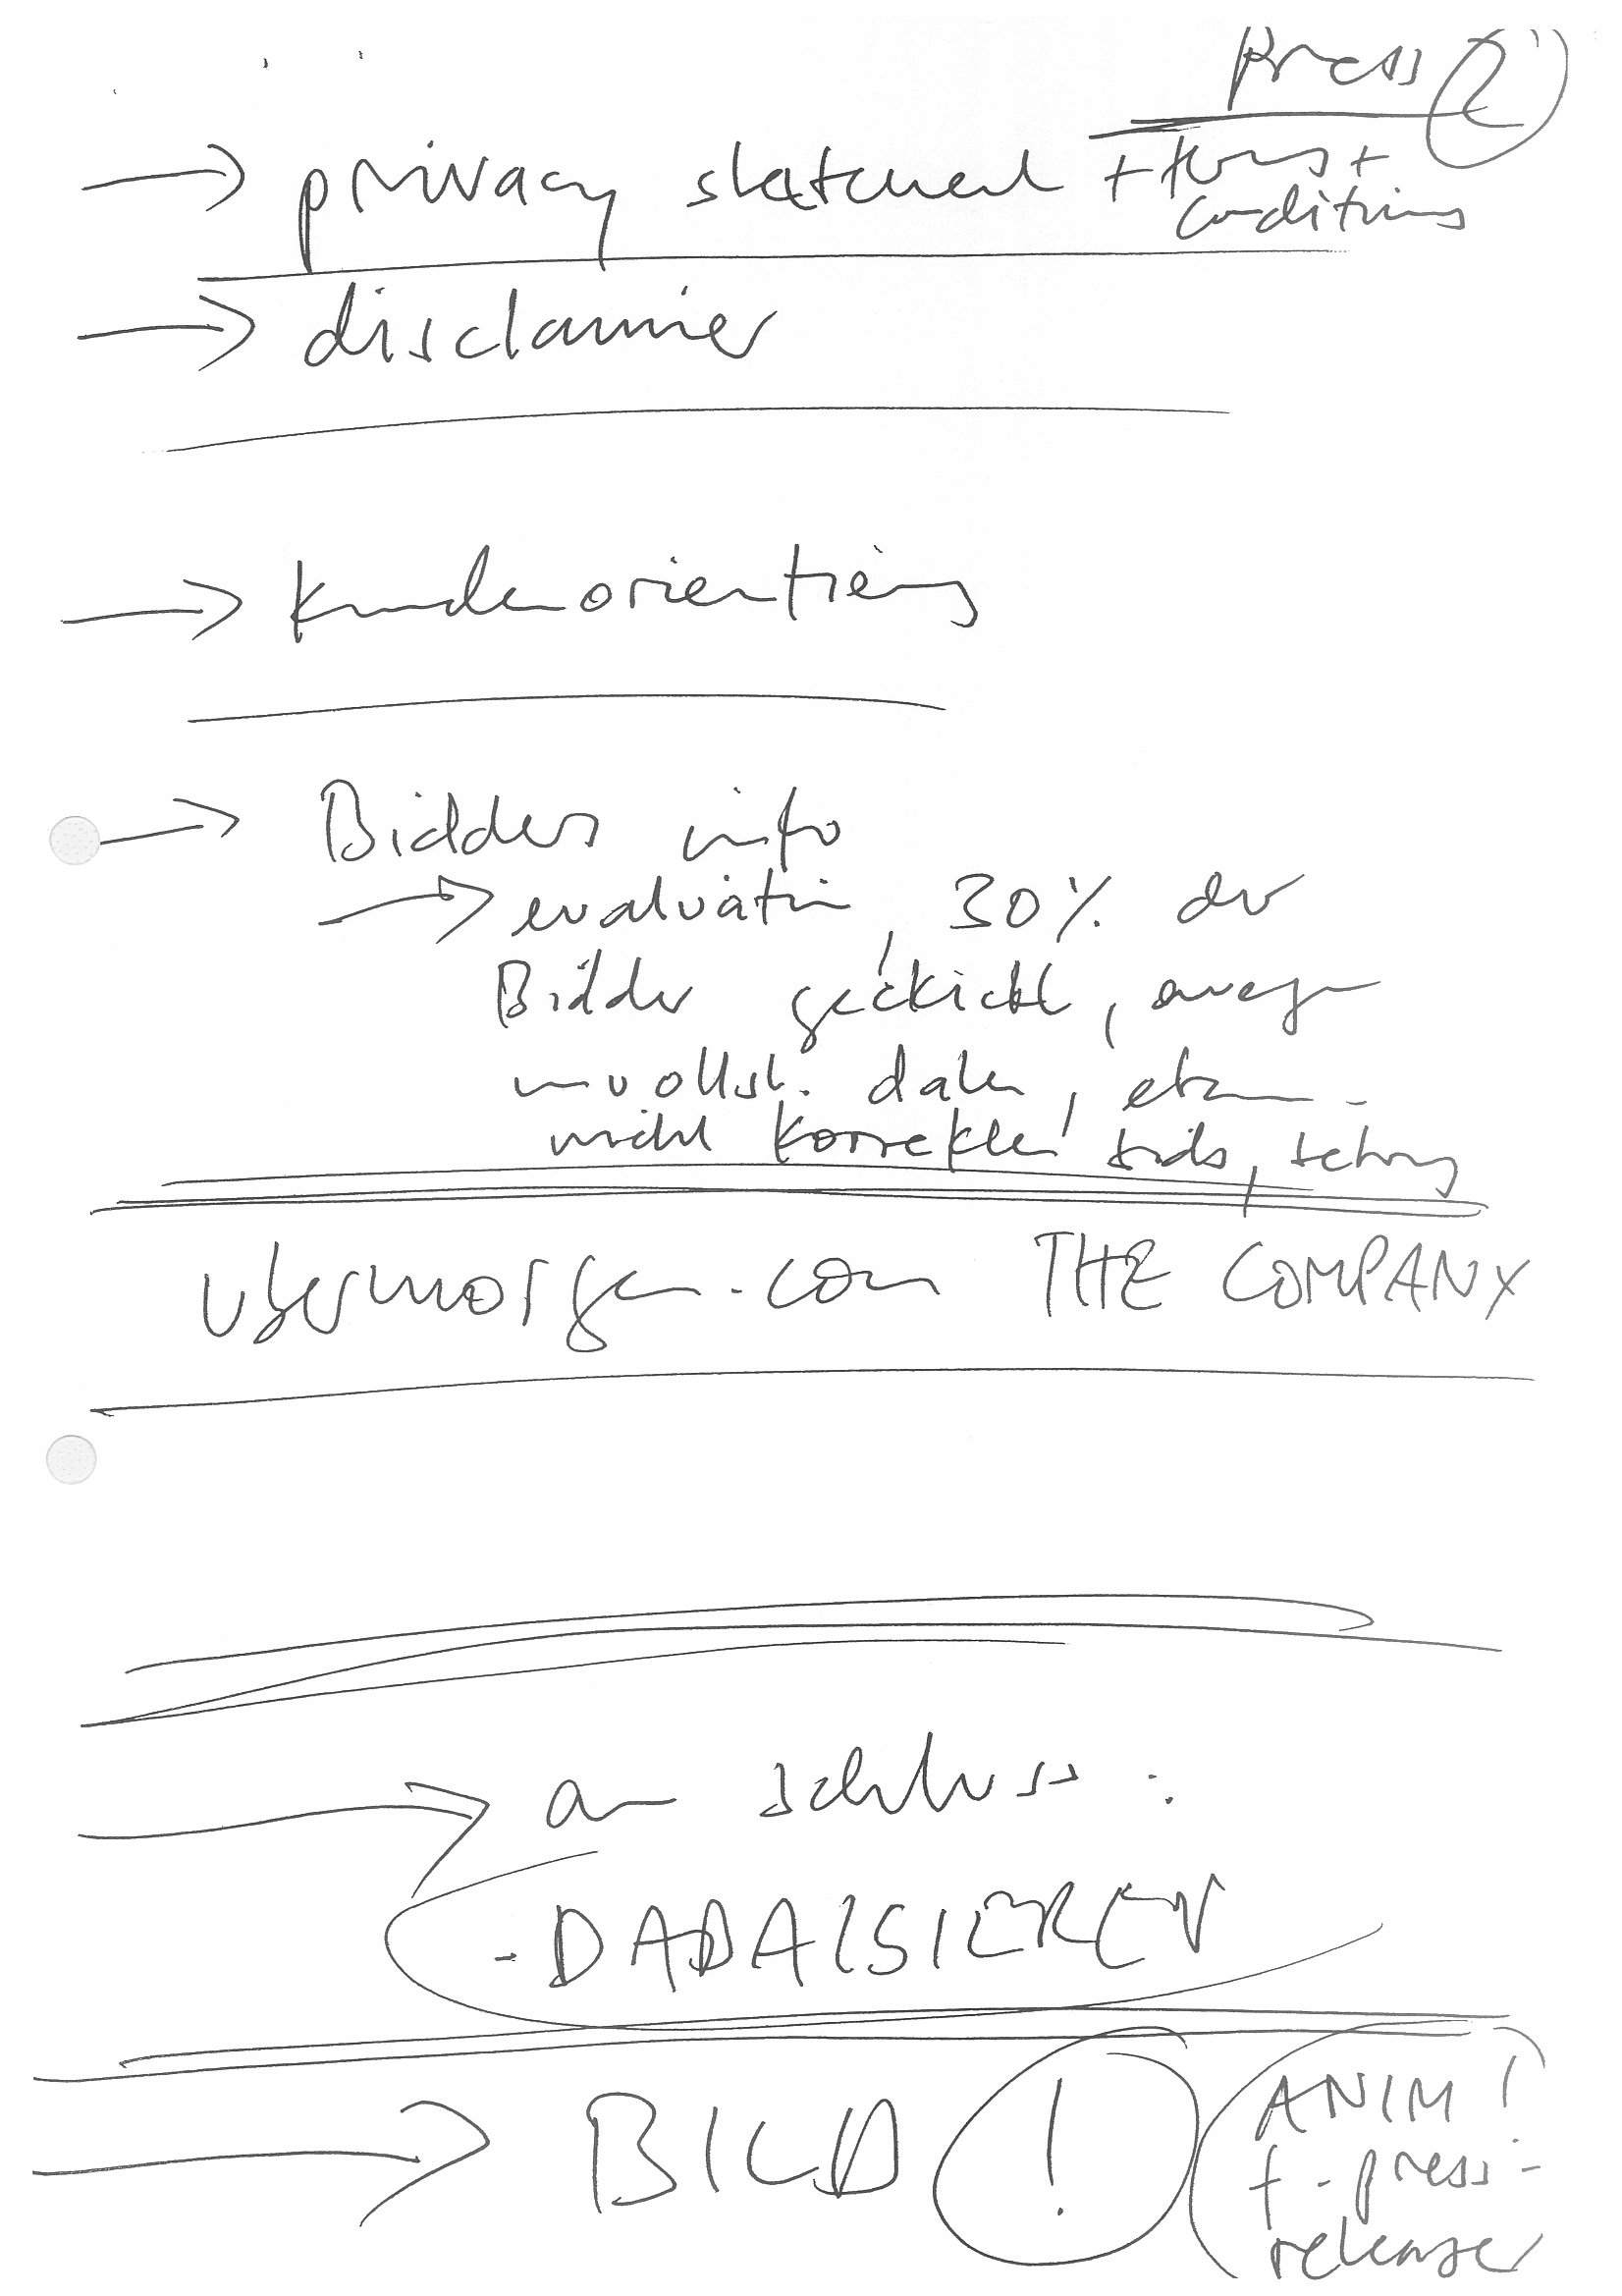 Press 2
→ privacy statement + terms +
conditions
→ disclaimer
→ Kundenorientierung
→ Bidders info
→ evaluation, 30% der
Bidder gekickt, wegen
unvollst. daten,
nicht korrekter bids,
ubermorgen.com THE COMPANY
→ am schluss:
- DADAISIEREN
→ BILD !
ANIM!
f. press-
release